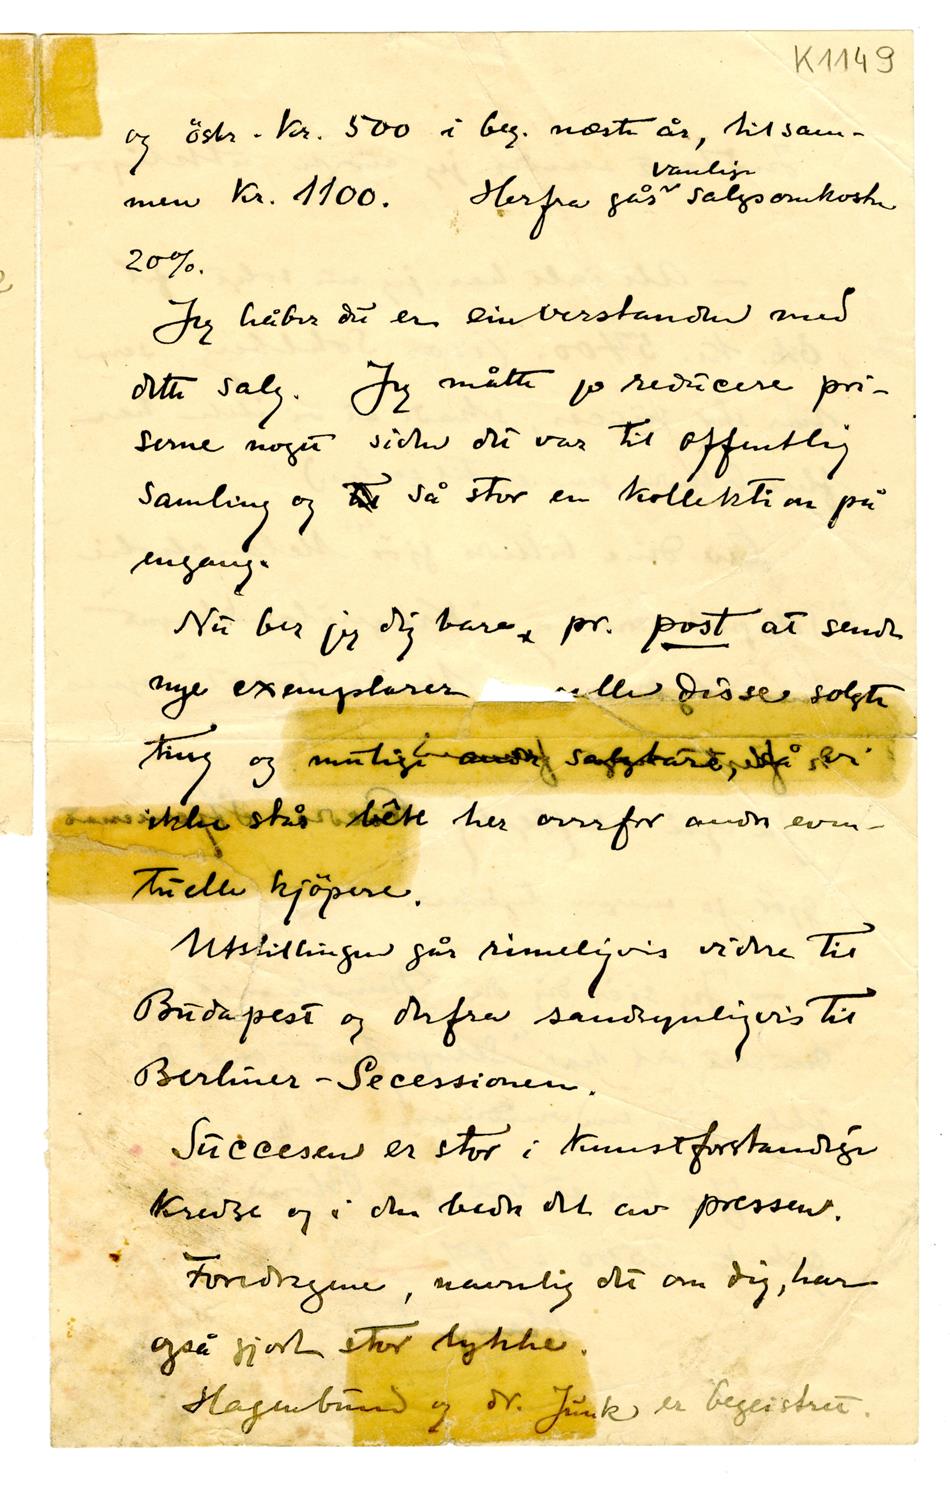 K1149
og östr. Kr. 500 i beg. næste år, tilsam-
men Kr. 1100. Herfra går vanlige salgsomkostn
20%.
Jeg håber du er einverstanden med
dette salg. Jeg måtte jo reducere pri-
serne noget siden det var til offentlig
samling og så stor en kollektion på
engang.
Nu ber jeg dig bare pr. post at sende
nye exemplarer alle disse solgte
ting og mulige andre salgbare, så vi
ikke står bête her overfor andre even-
tuelle kjöpere.
Utstillingen går rimeligvis videre til
Budapest og derfra sandsynligvis til
Berliner-Secessionen.
Succesen er stor i kunstforstandige
kredse og i den bedre del av pressen.
Foredragene, navnlig det om dig, har
også gjort stor lykke.
Hagenbund og dr. Junk er begeistret.